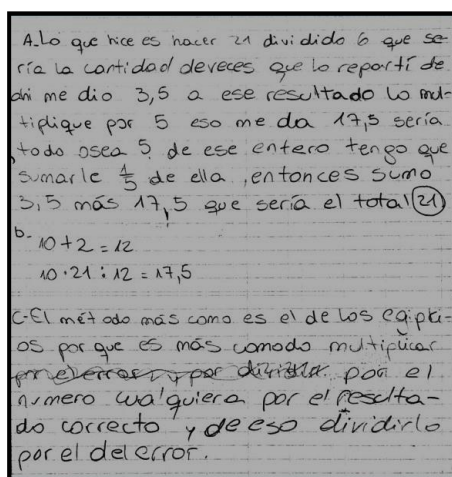 A-Lo que hice es hacer 21 dividido 6 que se-
ría la cantidad de veces que lo repartí de
ahi me dio 3,5 a ese resultado lo mul-
tiplique por 5 eso me da 17,5 sería
todo osea 5 de ese entero tengo que
sumarle 1/5 de ella, entonces sumo
3,5 más 17,5 que sería el total 21
b-
10+2=12
10·21:12=17,5
C-El método más como es el de los egipki-
os por que es más comodo multiplicar
por el error y por dividir por el
numero cualquiera por el resulta-
do correcto y de eso dividirlo
por el del error.